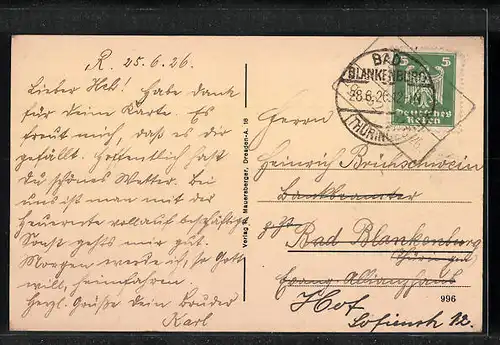 R. 25.6.26.
Lieber Heb! Habe Dank
für Deine Karte. Es
freut mich, dass es dir
gefällt. Hoffentlich hast
Du schönes Wetter. Bei
uns ist man mit der
Heuernte vollauf beschäftigt.
Sonst geht's mir gut.
Morgen werde ich, so Gott
will, heimfahren.
Herzl. Grüße Dein Bruder
Karl
Verlag R. Mauersberger, Dresden-A. 16
BAD
BLANKENBURG
28.6.26.
(THÜRING
5
Deutsches
Reich
Herrn
Heinrich Brünschwein
Bankbeamter
z. Zt. Bad Blankenburg
Thüringen
Evang. Allianzhaus
Hof
Sofienstr. 12.
996